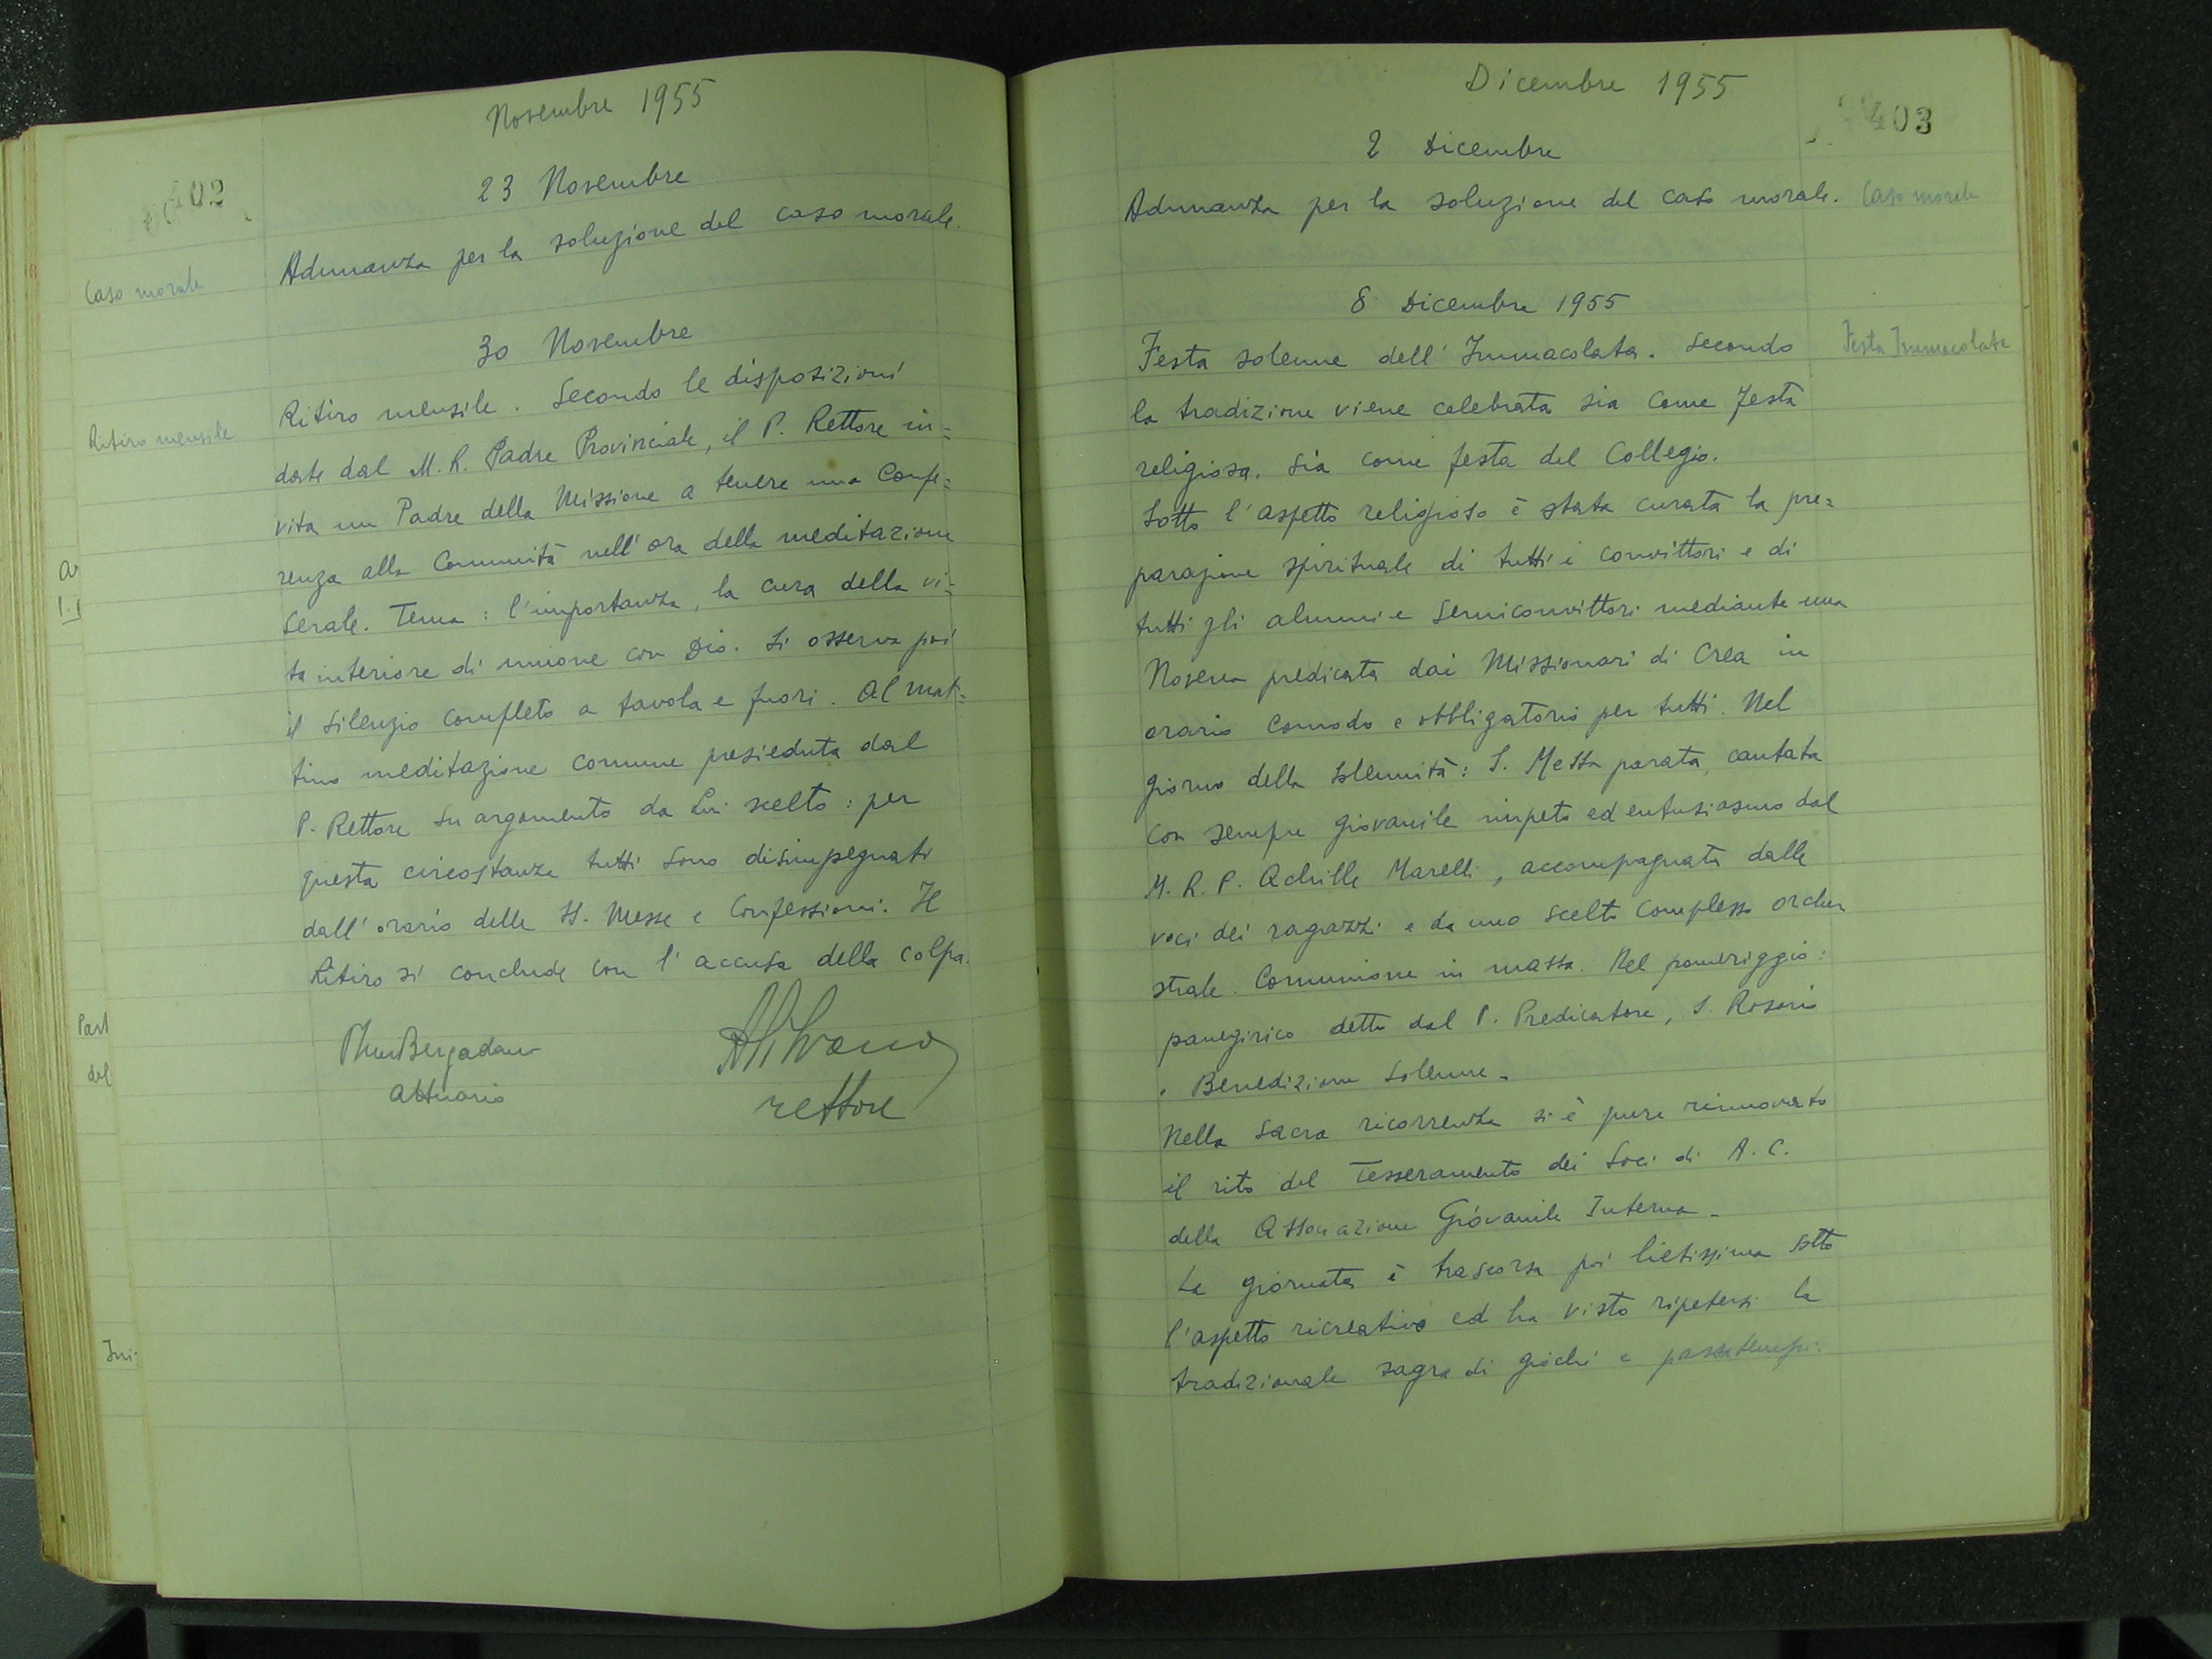 Novembre 1955
402
23 Novembre
Caso morale
Adunanza per la soluzione del caso morale.
30 Novembre
Ritiro mensile
Ritiro mensile. Secondo le disposizioni
date dal M. R. Padre Provinciale, il P. Rettore in=
vita un Padre della Missione a tenere una Confe=
renza alla Comunità nell'ora della meditazione
serale. Tema: l'importanza, la cura della vi=
ta interiore di unione con Dio. Si osserva poi
il silenzio completo a tavola e fuori. Al mat=
tino meditazione comune presieduta dal
P. Rettore su argomento da Lui scelto: per
questa circostanza tutti sono disimpegnati
dall'orario delle SS. Messe e Confessioni. Il
Ritiro si conclude con l'accusa della colpa.
Bergadano
Attuario
rettore
Part
del
Dicembre 1955
403
2 Dicembre
Adunanza per la soluzione del caso morale.
Caso morale
8 Dicembre 1955
Festa Immacolata
Festa solenne dell'Immacolata. Secondo
la tradizione viene celebrata sia come festa
religiosa, sia come festa del Collegio.
Sotto l'aspetto religioso è stata curata la pre=
parazione spirituale di tutti i convittori e di
tutti gli alunni e semiconvittori mediante una
Novena predicata dai Missionari di Crea in
orario comodo e obbligatorio per tutti. Nel
giorno della solennità: S. Messa parata, cantata
con sempre giovanile impeto ed entusiasmo dal
M. R. P. Achille Marelli, accompagnata dalle
voci dei ragazzi e da uno scelto complesso orche
strale. Comunione in massa. Nel pomeriggio:
panegirico detto dal P. Predicatore, S. Rosario
e Benedizione solenne.
Nella sacra ricorrenza si è pure rinnovato
il rito del Tesseramento dei Soci di A. C.
della Associazione Giovanile Interna.
La giornata è trascorsa poi lietissima sotto
l'aspetto ricreativo ed ha visto ripetersi la
tradizionale sagra di giochi e passatempi.